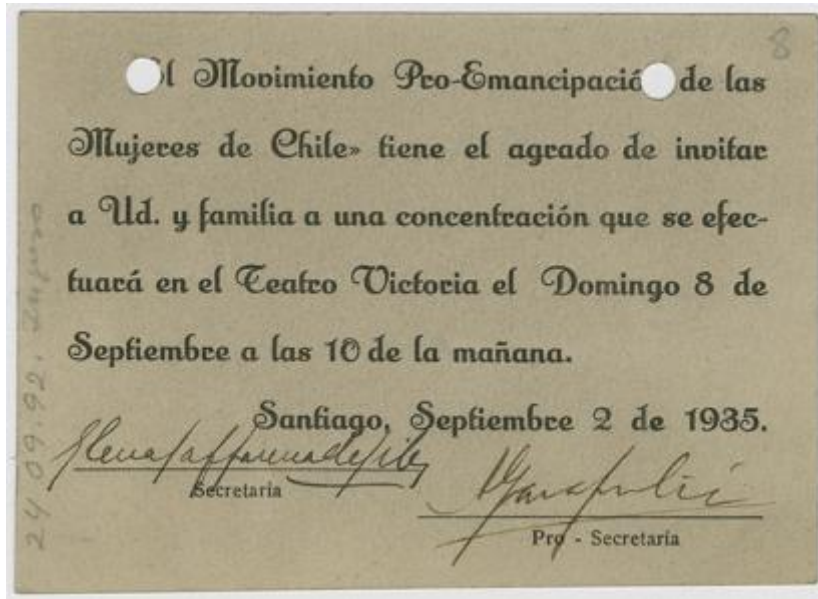 8
l Movimiento Pro-Emancipació de las
Mujeres de Chile» tiene el agrado de invitar
a Ud. y familia a una concentración que se efec-
tuará en el Teatro Victoria el Domingo 8 de
Septiembre a las 10 de la mañana.
Santiago, Septiembre 2 de 1935.
Elena Caffarena de Jiles
Secretaria
Pro - Secretaría
24.09.92.